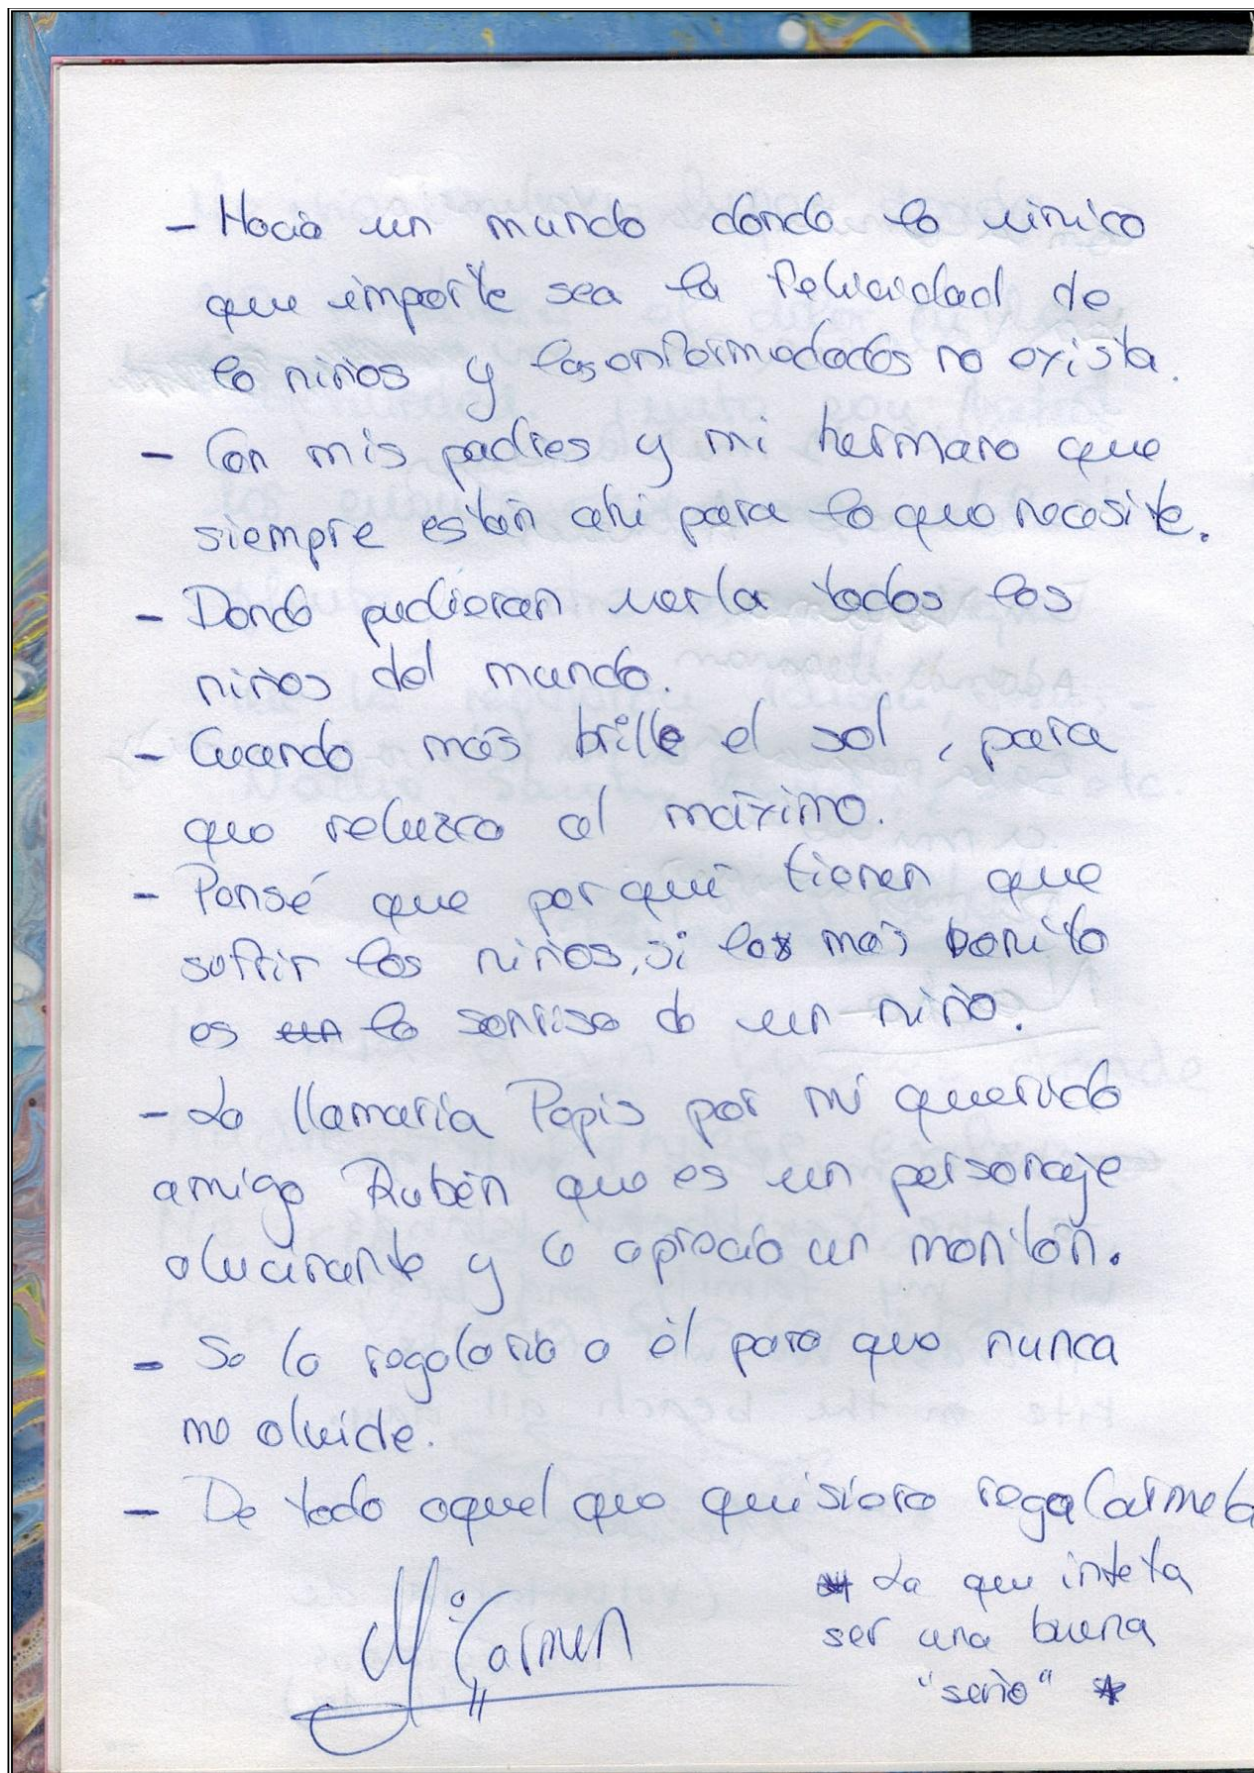 - Hacia un mundo donde lo único
que importe sea la feliucidad de
lo niños y las enfermedades no exista.
- Con mis padres y mi hermano que
siempre están ahí para lo que necesite.
- Donde pudieran verla todos los
niños del mundo.
- Cuando más brille el sol, para
que reluzca al máximo.
- Pensé que por qué tienen que
sufrir los niños, si los más bonito
es un la sonrisa de un niño.
- La llamaría Papis por mi querido
amigo Rubén que es un personaje
alucinante y le aprecio un montón.
- Se la regalaría a él para que nunca
me olvide.
- De todo aquel que quisiera regalarmela
* La que inteta
ser una buena
"seño" *
Mª Carmen